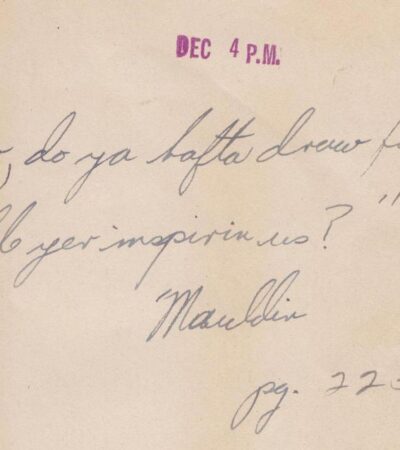 DEC 4 P.M.
, do ya hafta draw
yer inspirin us? "
Mauldin
pg. 22